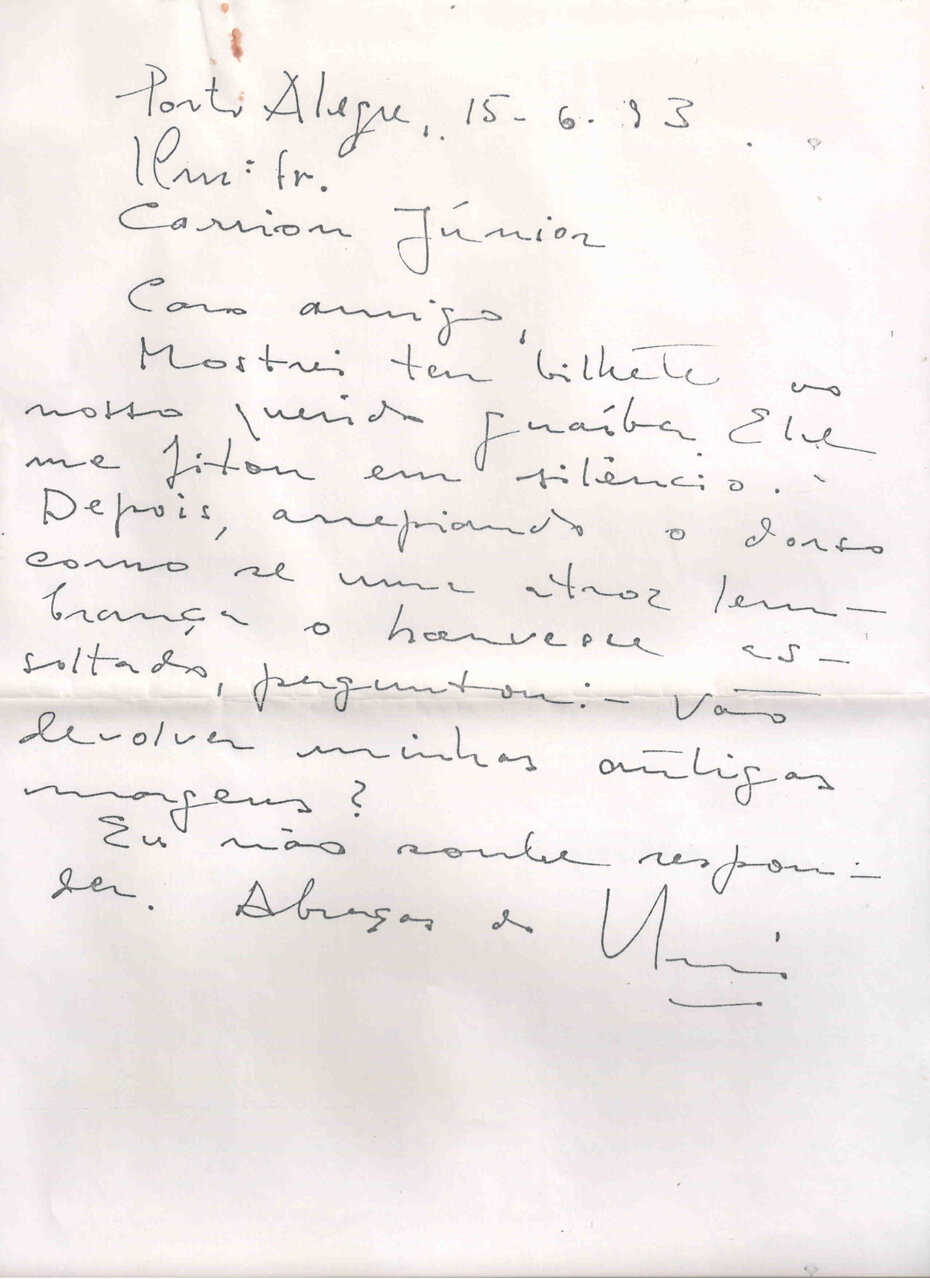 Porto Alegre, 15-6-93
Ilmº Sr.
Carrion Júnior
Caro amigo,
Mostrei teu bilhete ao
nosso querido Guaíba Ele
me fitou em silêncio.
Depois, arrepiando o dorso
como se uma atroz lem-
brança o houvesse as-
soltado, perguntou: - Vão
devolver minhas antigas
margens?
Eu não soube respon-
der. Abraços do